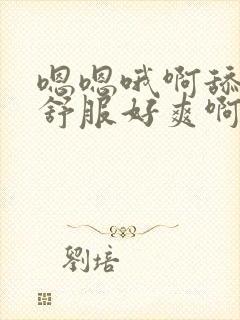 嗯嗯哦啊舔
舒服好爽啊
劉培